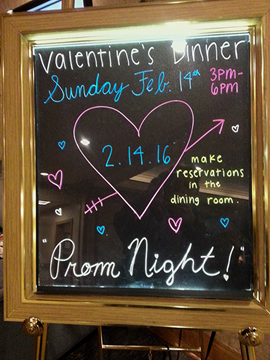 Valentine's Dinner
Sunday Feb. 14th
3PM-
6PM
2.14.16
make
reservations
in the
dining room.
"Prom Night!"